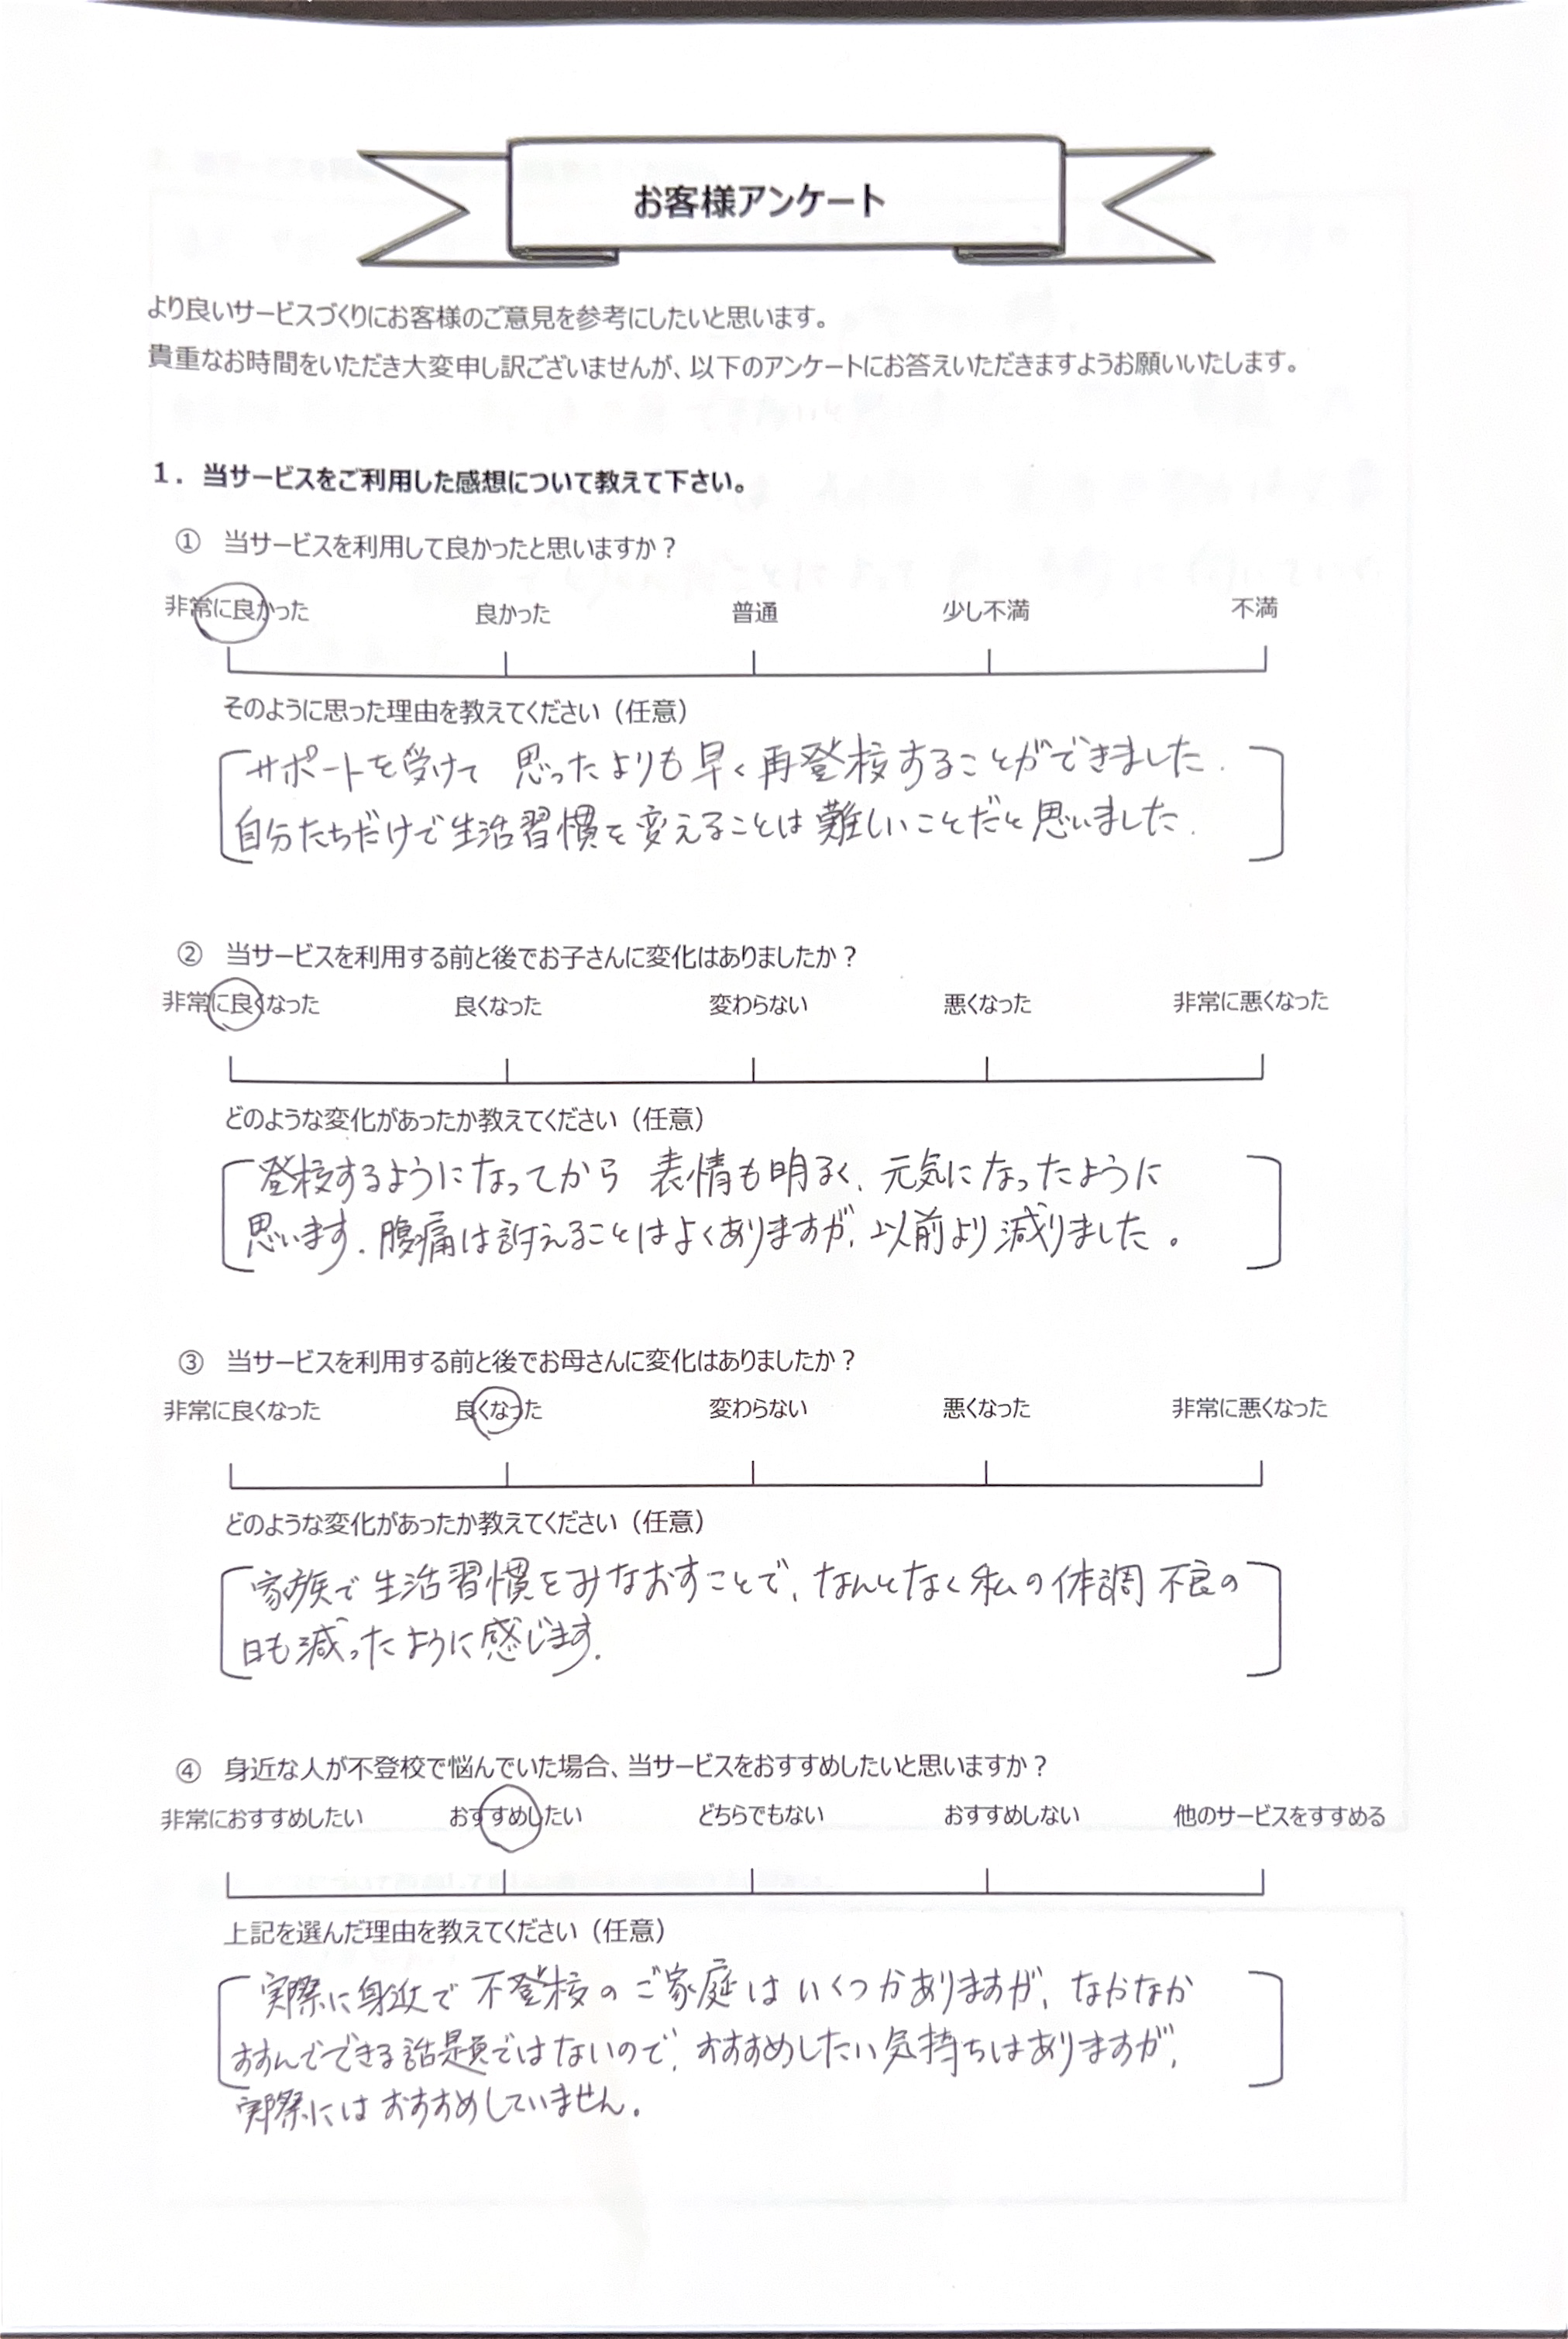 お客様アンケート
より良いサービスづくりにお客様のご意見を参考にしたいと思います。
貴重なお時間をいただき大変申し訳ございませんが、以下のアンケートにお答えいただきますようお願いいたします。
1．当サービスをご利用した感想について教えて下さい。
① 当サービスを利用して良かったと思いますか？
非常に良かった 良かった 普通 少し不満 不満
そのように思った理由を教えてください（任意）
サポートを受けて 思ったよりも早く再登校することができました.
自分たちだけで生活習慣を変えることは難しいことだと思いました.
② 当サービスを利用する前と後でお子さんに変化はありましたか？
非常に良くなった 良くなった 変わらない 悪くなった 非常に悪くなった
どのような変化があったか教えてください（任意）
登校するようになってから 表情も明るく、元気になったように
思います. 腹痛は訴えることはよくありますが、以前より減りました。
③ 当サービスを利用する前と後でお母さんに変化はありましたか？
非常に良くなった 良くなった 変わらない 悪くなった 非常に悪くなった
どのような変化があったか教えてください（任意）
家族で生活習慣をみなおすことで、なんとなく私の体調不良の
日も減ったように感じます.
④ 身近な人が不登校で悩んでいた場合、当サービスをおすすめしたいと思いますか？
非常におすすめしたい おすすめしたい どちらでもない おすすめしない 他のサービスをすすめる
上記を選んだ理由を教えてください（任意）
実際に身近で不登校のご家庭はいくつかありますが、なかなか
すすんでできる話題ではないので、おすすめしたい気持ちはありますが、
実際にはおすすめしていません.